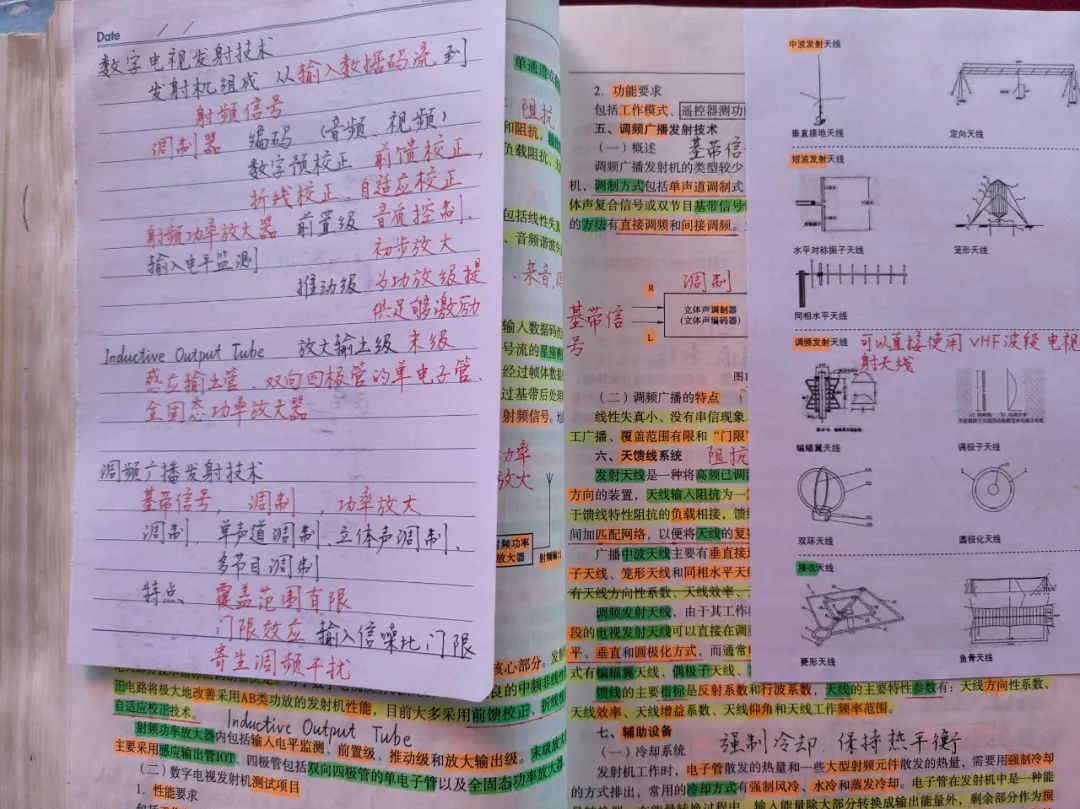 Date / /
数字电视发射技术
发射机组成 从输入数据码流到
射频信号
调制器 编码(音频、视频)
数字预校正 前馈校正,
折线校正、自适应校正
射频功率放大器 前置级 音质控制、
输入电平监测 初步放大
推动级 为功放级提
供足够激励
Inductive Output Tube 放大输出级 末级
感应输出管、双向四极管的单电子管、
全固态功率放大器
调频广播发射技术
基带信号, 调制, 功率放大
调制、单声道调制、立体声调制、
多节目调制
特点 覆盖范围有限
门限效应 输入信噪比 门限
寄生调频干扰
正电路将极大地改善采用AB类功放的发射机性能,目前大多采用前馈校正、折线校
自适应校正技术。
Inductive Output Tube
射频功率放大器内包括输入电平监测、前置级、推动级和放大输出级。末级放大
主要采用感应输出管IOT、四极管包括双向四极管的单电子管以及全固态功率放大器
(二)数字电视发射机测试项目
1. 性能要求
单通道
阻抗
和阻抗,
负载阻抗、
包括线性失真
、音频谐波失
杂音
输入数据码
号流的星座
经过帧体数据
过基带后处理
射频信号。
功率
放大
射频功率
放大器
射频输出
核心部分。发射
良的中频非线
2. 功能要求
包括工作模式、遥控器测功
五、调频广播发射技术
(一)概述 基带信
调频广播发射机的类型较少
机,调制方式包括单声道调制
体声复合信号或双节目基带信号
的方法有直接调频和间接调频。
调制
基带信
号
R
L
立体声调制器
(立体声编码器)
(二)调频广播的特点
线性失真小、没有串信现象
工广播、覆盖范围有限和“门限
六、天馈线系统 阻抗
发射天线是一种将高频已调
方向的装置,天线输入阻抗为一
于馈线特性阻抗的负载相接,馈
间加匹配网络,以便将天线的复
广播中波天线主要有垂直接
子天线、笼形天线和同相水平天
有天线方向性系数、天线效率、
调频发射天线,由于其工作
段的电视发射天线可以直接在调
平、垂直和圆极化方式,而通常
式有蝙蝠翼天线、偶极子天线、
馈线的主要指标是反射系数和行波系数,天线的主要特性参数有:天线方向性系数、
天线效率、天线增益系数、天线仰角和天线工作频率范围。
七、辅助设备
(一)冷却系统 强制冷却、保持热平衡
发射机工作时,电子管散发的热量和一些大型射频元件散发的热量,需要用强制冷却
的方式排出,常用的冷却方式有强制风冷、水冷和蒸发冷却。电子管在发射机中是一种能
中波发射天线
垂直接地天线
定向天线
短波发射天线
水平对称振子天线
笼形天线
同相水平天线
调频发射天线 可以直接使用VHF波段电视
射天线
蝙蝠翼天线
偶极子天线
双环天线
圆极化天线
接收天线
菱形天线
鱼骨天线